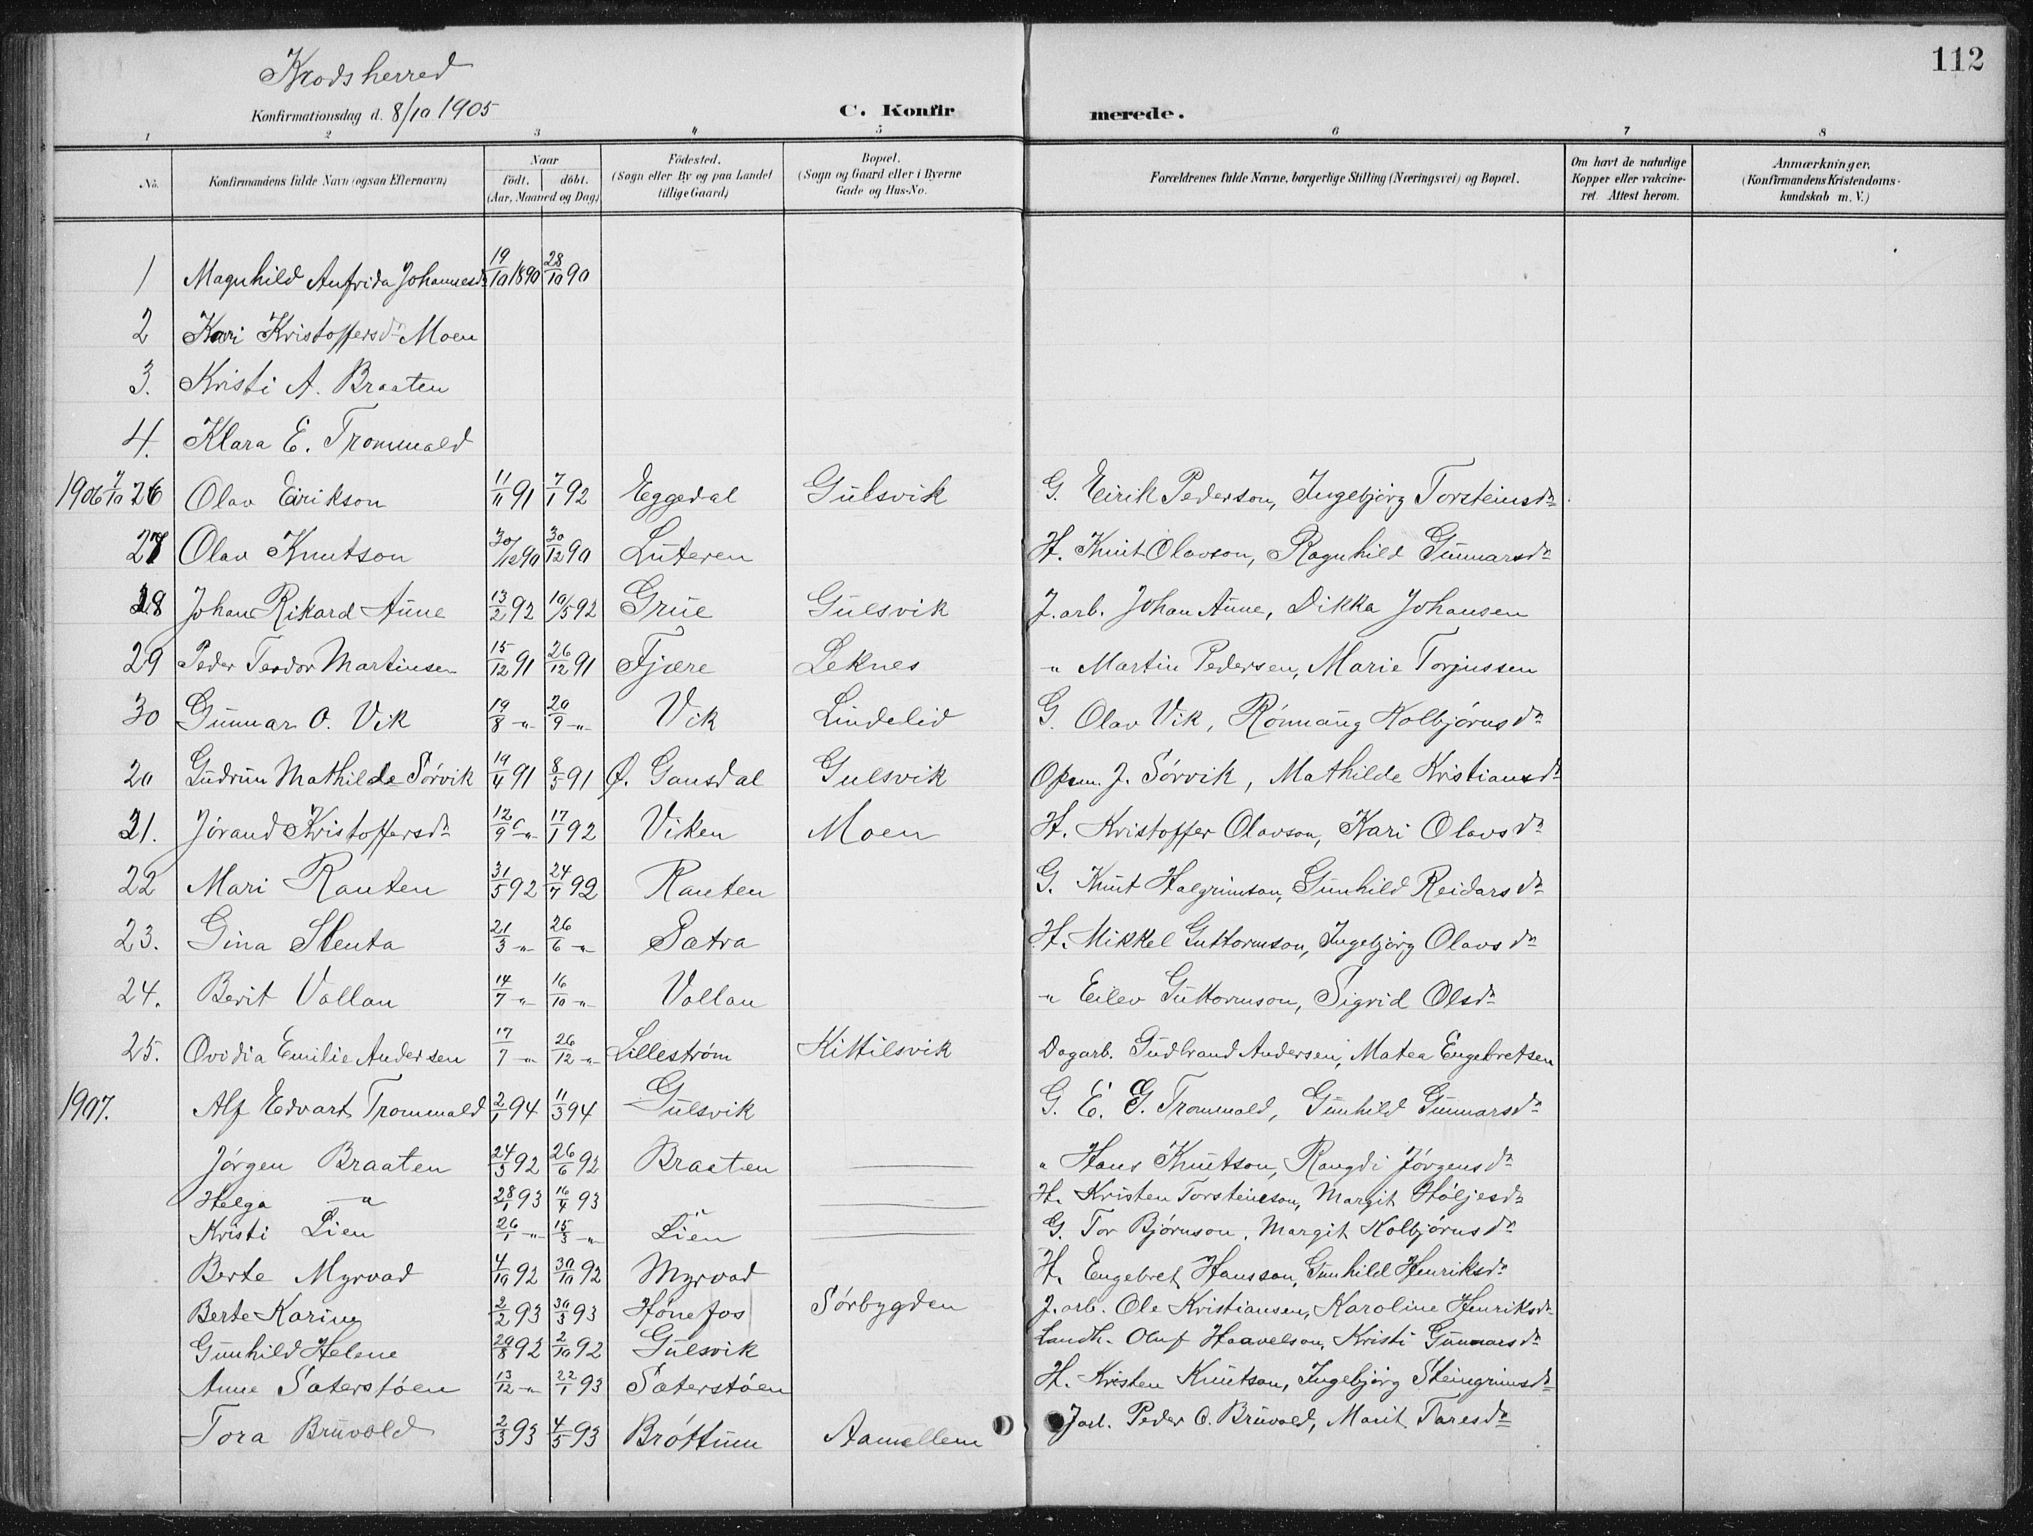 112
Krodsherred
Konfirmationsdag d. 8/10 1905
C. Konfirmerede.
1 2 3 4 5 6 7 8
No. Konfirmandens fulde Navn (ogsaa Efternavn) Naar født. døbt. (Aar, Maaned og Dag) Fødested. (Sogn eller By og paa Landet tillige Gaard) Bopæl. (Sogn og Gaard eller i Byerne Gade og Hus-No. Forældrenes fulde Navne, borgerlige Stilling (Næringsvei) og Bopæl. Om havt de naturlige Kopper eller vakcineret. Attest herom. Anmærkninger. (Konfirmandens Kristendomskundskab m. V.)
1 Magnhild Anfrida Johannesdr 19/10 1890 28/10 90
2 Kari Kristoffersdr Moen
3. Kristi A. Braaten
4. Klara E. Trommald
1906 7/10 26 Olav Eirikson 11/11 91 7/1 92 Eggedal Gulsvik G. Eirik Pederson, Ingebjörg Torsteinsdr
27 Olav Knutson 30/12 90 30/12 90 Luteren H. Knut Olavson, Ragnhild Gunnarsdr
28 Johan Rikard Aune 13/2 92 10/5 92 Grue Gulsvik J. arb. Johan Aune, Dikka Johansen
29 Peder Teodor Martinsen 15/12 91 26/12 91 Fjære Leknes " Martin Pedersen, Marie Torjussen
30 Gunnar O. Vik 19/8 -"- 20/9 -"- Vik Lindelid G. Olav Vik, Rönnaug Kolbjörnsdr
20 Gudrun Mathilde Sörvik 19/4 91 8/5 91 Ø. Gausdal Gulsvik Opsm. J. Sörvik, Mathilde Kristiansdr
21. Jörand Kristoffersdr 12/9 -"- 17/1 92 Viken Moen H. Kristoffer Olavson, Kari Olavsdr
22 Mari Rauten 31/5 92 24/7 92 Rauten G. Knut Halgrimson, Gunhild Reidarsdr
23. Gina Slenta 21/3 -"- 26/6 -"- Satra H. Mikkel Guttormson, Ingebjörg Olavsdr
24. Berit Vollan 14/7 -"- 16/10 -"- Vollan " Eilev Guttormson, Sigrid Olsdr
25. Ovidia Emilie Andersen 17/7 -"- 26/12 -"- Lillestrøm Kittilsvik Dagarb. Gudbrand Andersen, Matea Engebretsen
1907. Alf Edvart Trommald 2/1 94 11/3 94 Gulsvik G. E. G. Trommald, Gunhild Gunnarsdr
Jörgen Braaten 24/5 92 26/6 92 Braaten " Hans Knutson, Rangdi Jörgensdr
Helga -"- 28/1 93 16/4 93 " H. Kristen Torsteinson, Margit Höljesdr
Kristi Lien 26/1 -"- 15/3 -"- Lien G. Tor Björnson, Margit Kolbjörnsdr
Berte Myrvad 4/10 92 30/10 92 Myrvad H. Engebret Hansson, Gunhild Henriksdr
Berte Karine 2/2 93 30/3 93 Hönefos Sörbygden J. arb. Ole Kristiansen, Karoline Henriksdr
Gunhild Helene 29/8 92 2/10 92 Gulsvik Landh. Oluf Haavelson, Kristi Gunnarsdr
Anne Sæterstöen 13/12 -"- 22/1 93 Sæterstöen H. Kristen Knutson, Ingebjörg Steingrimsdr
Tora Bruvold 2/3 93 4/5 93 Bröttum Aamellem J arb. Peder O. Bruvold, Marit Taresdr